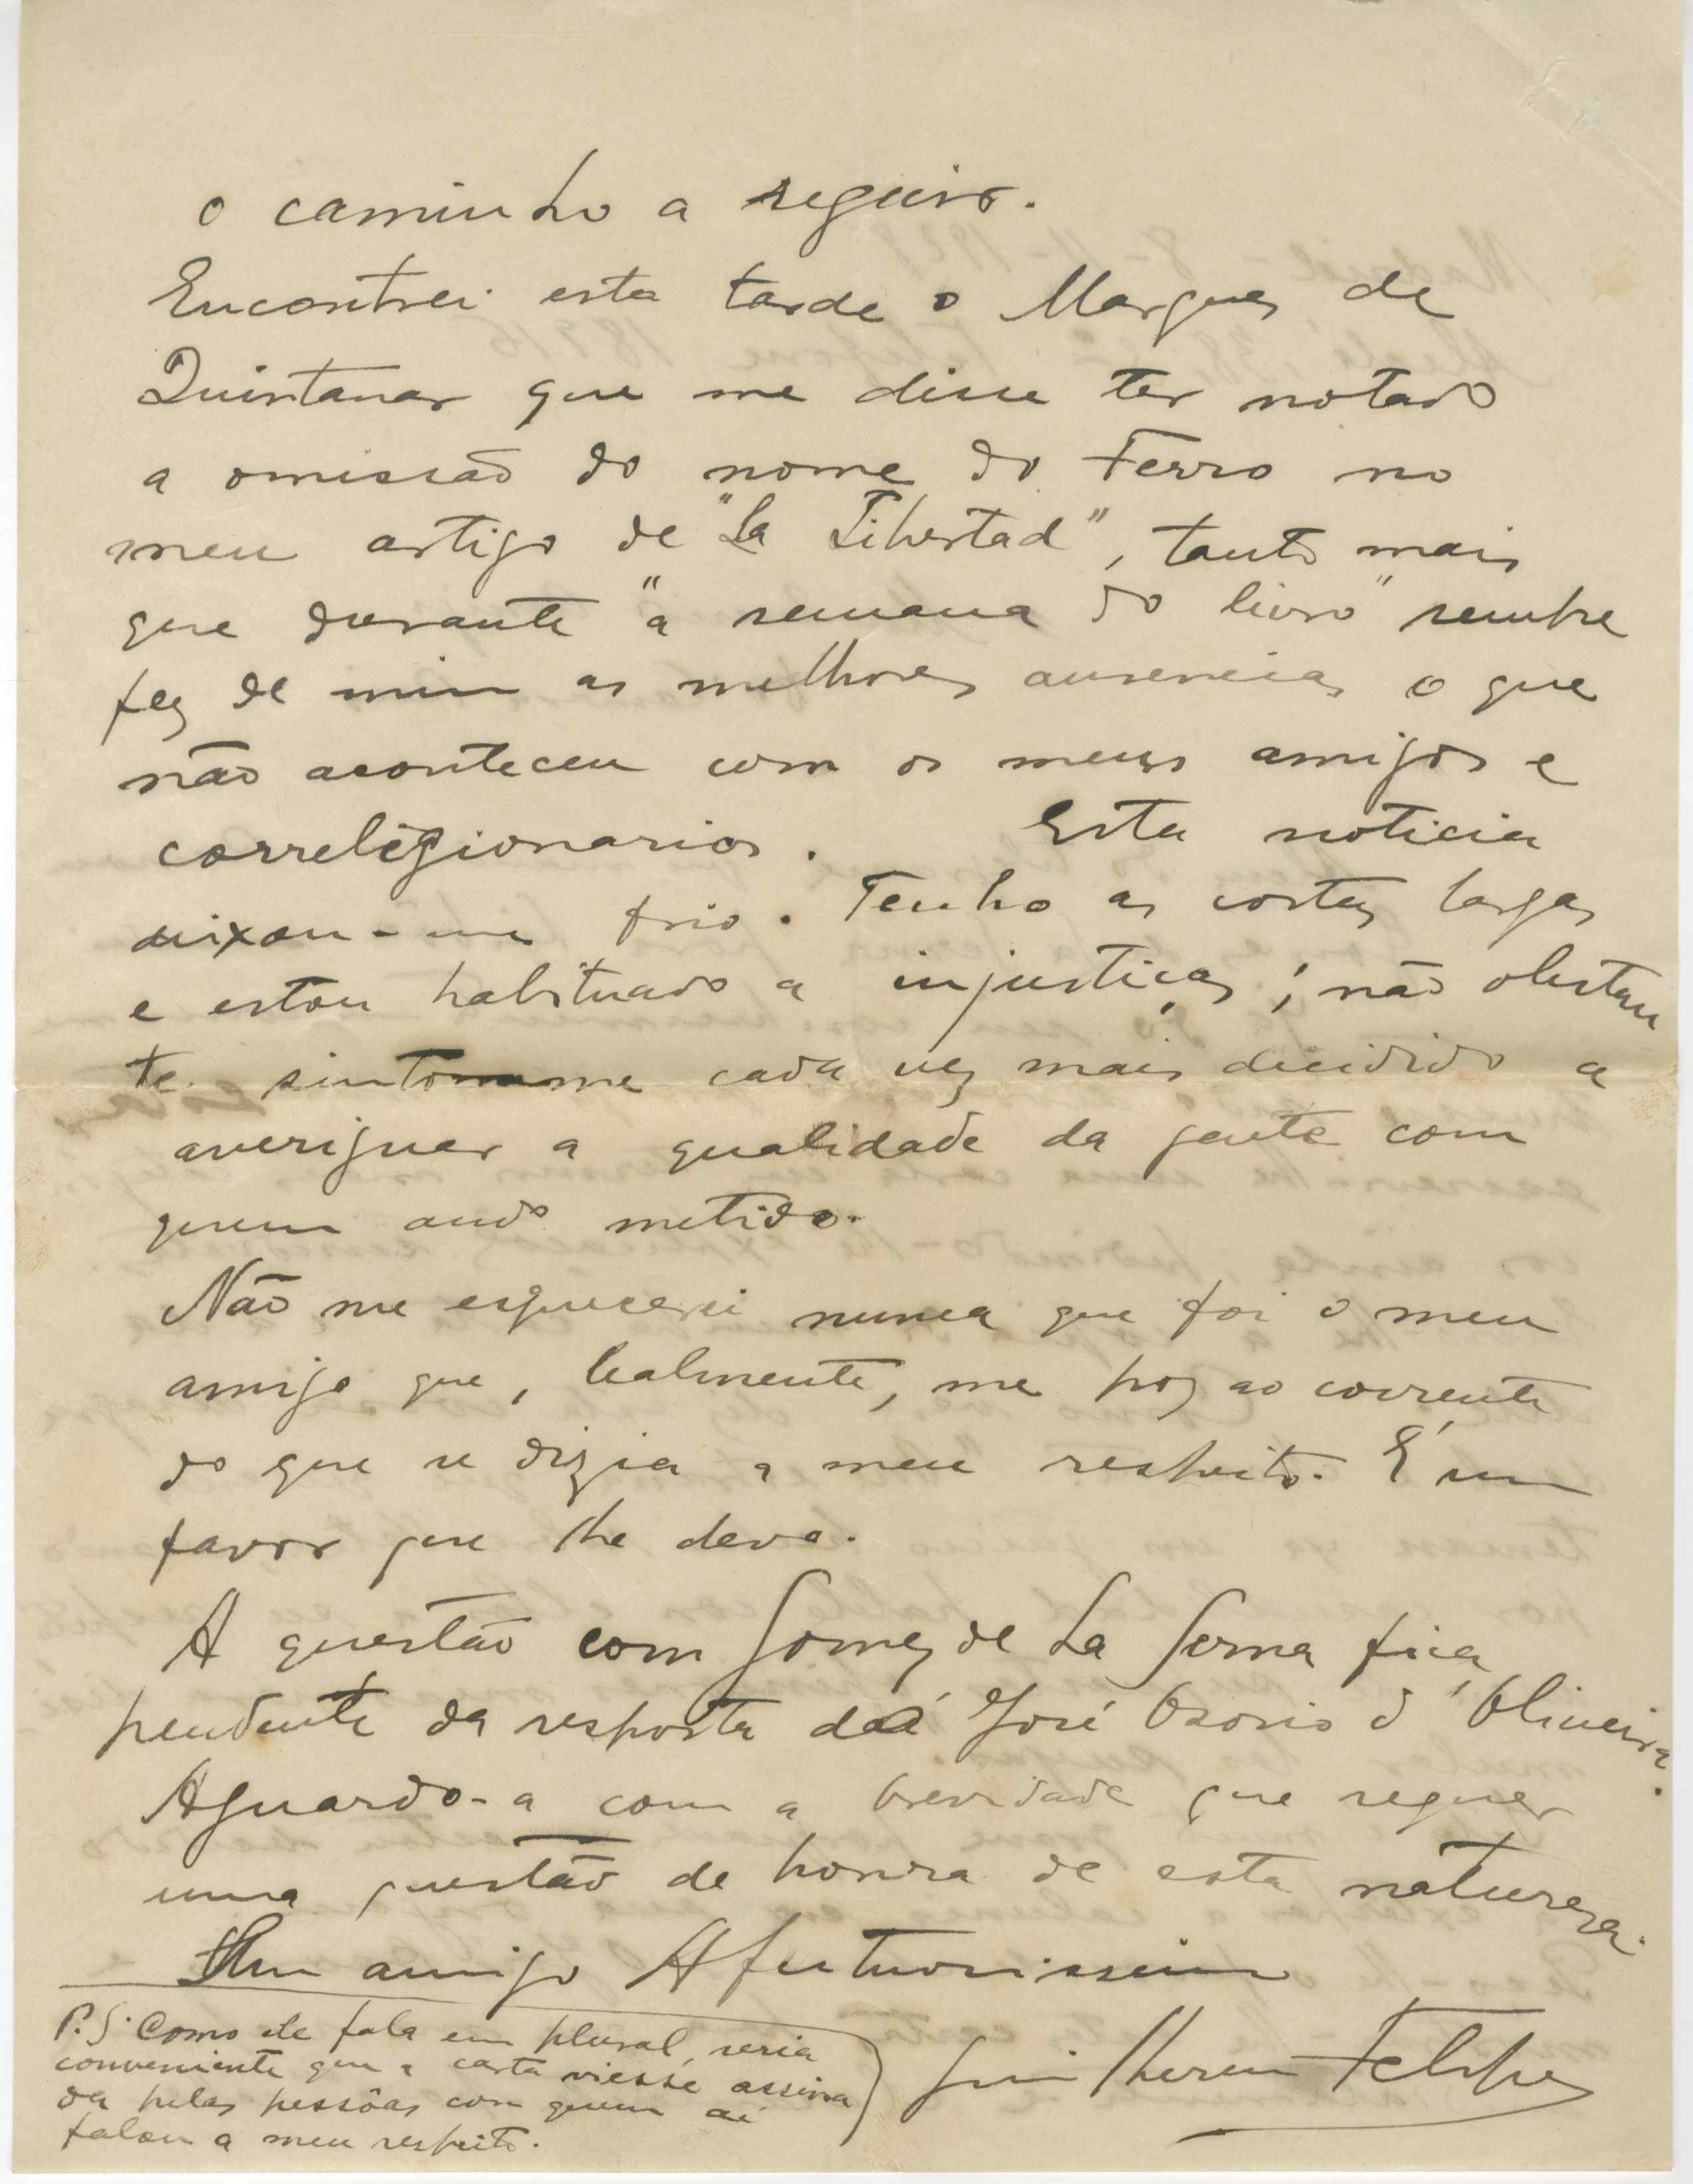 o caminho a seguir.
Encontrei esta tarde o Marques de
Quintanar que me disse ter notado
a omissão do nome do Ferro no
meu artigo de "La Libertad", tanto mais
que durante "a semana do livro" sempre
fez de mim as melhores ausencias o que
não aconteceu com os meus amigos e
correligionarios. Esta noticia
deixou-me frio. Tenho as costas largas
e estou habituado a injustiças; não obstan
te sinto me cada vez mais decidido a
averiguar a qualidade da gente com
quem ando metido.
Não me esquecerei nunca que foi o meu
amigo que, lealmente, me poz ao corrente
do que se dizia a meu respeito. É um
favor que lhe devo.
A questão com Gomez de La Serna fica
pendente da resposta daí José Osorio d'Oliveira.
Aguardo-a com a brevidade que requer
uma questão de honra de esta natureza.
Seu amigo Afectuosissimo
Guilherme Felipe
P.S. Como ele fala em plural, seria
conveniente que a carta viesse assina
da pelas pessôas com quem aí
falou a meu respeito.